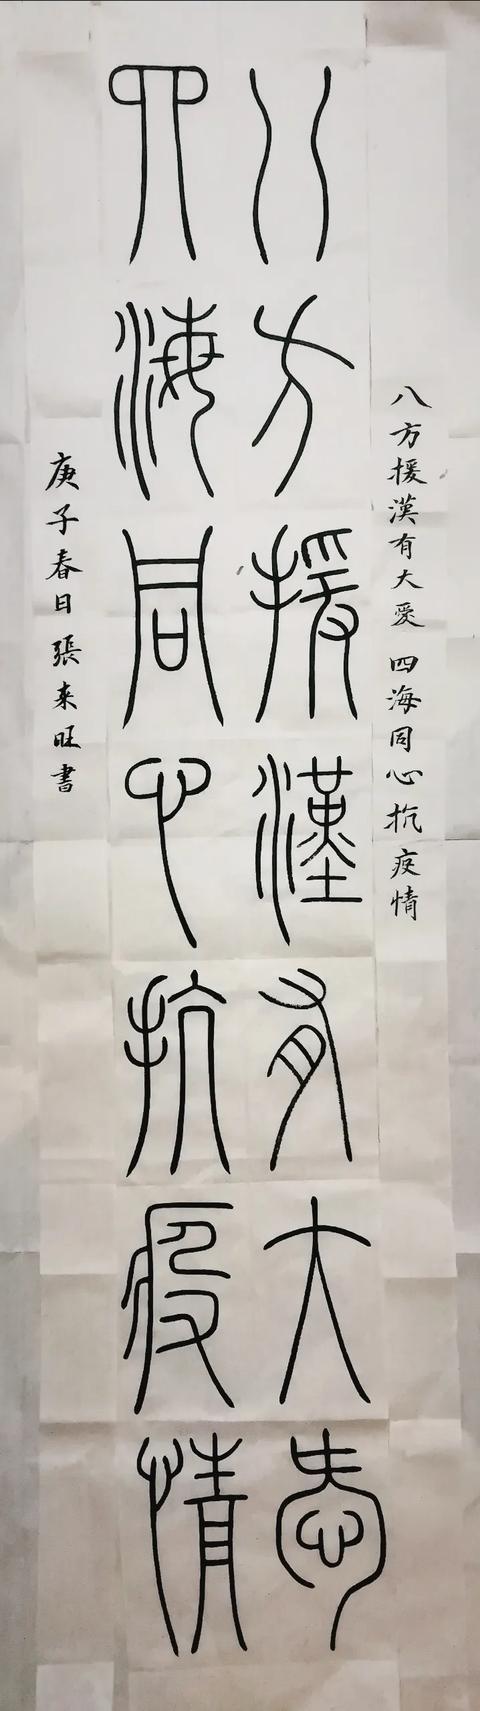 八方援漢有大愛 四海同心抗疫情
八方援漢有大愛
四海同心抗疫情
庚子春日張来旺書